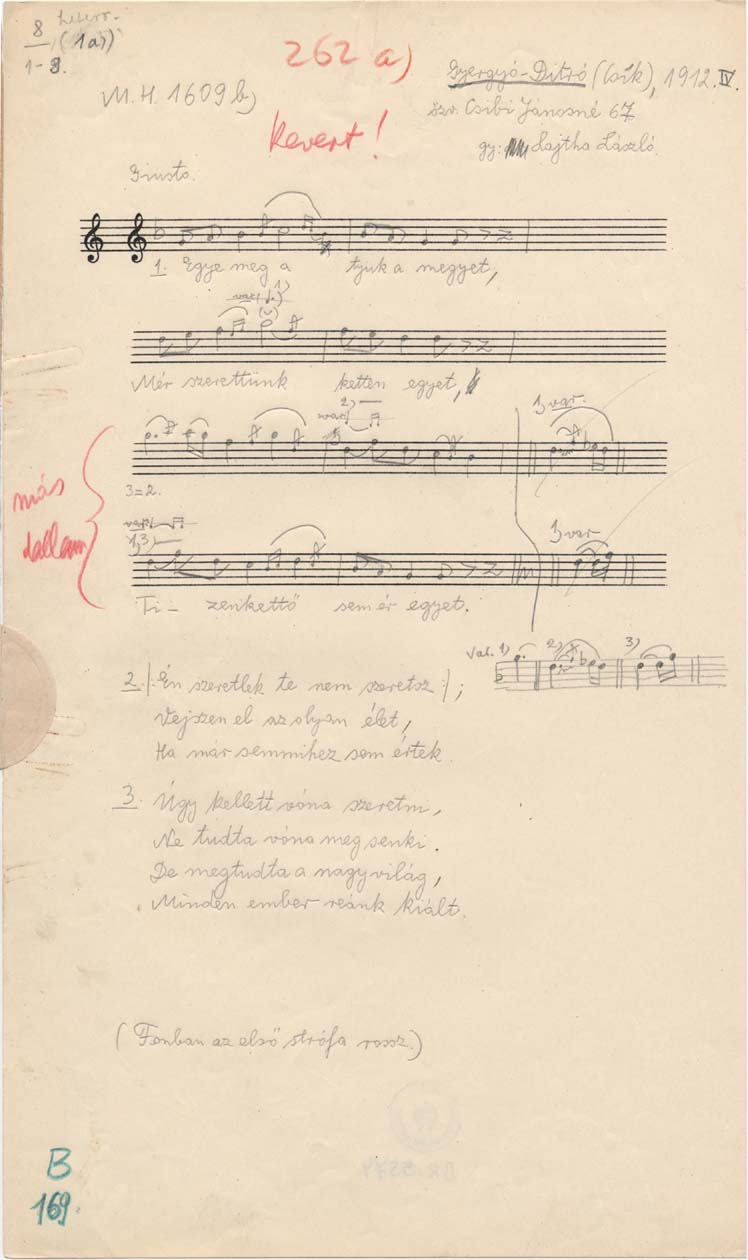 8
1-3.
(1a5)
262 a)
Gyergyó-Ditró (Csík), 1912. IV.
M.H. 1609 b)
Csibi Jánosné 67
Kevert!
gy: Lajtha László.
Giusto.
1. Egye meg a tyuk a megyet,
var.
Mér szerettünk ketten egyet,
2)
var.
1) var.
3=2.
más
dallam
var.
1,3)
1) var
Ti- zenkettő sem ér egyet.
Var. 1) 2) 3)
2. |: Én szeretlek te nem szeretsz :| ;
Vejszen el az olyan élet,
Ha már semmihez sem értek.
3. Úgy kellett vóna szeretni,
Ne tudta vóna meg senki.
De megtudta a nagyvilág,
Minden ember reánk kiált.
(Fonban az első strófa rossz.)
B
169.